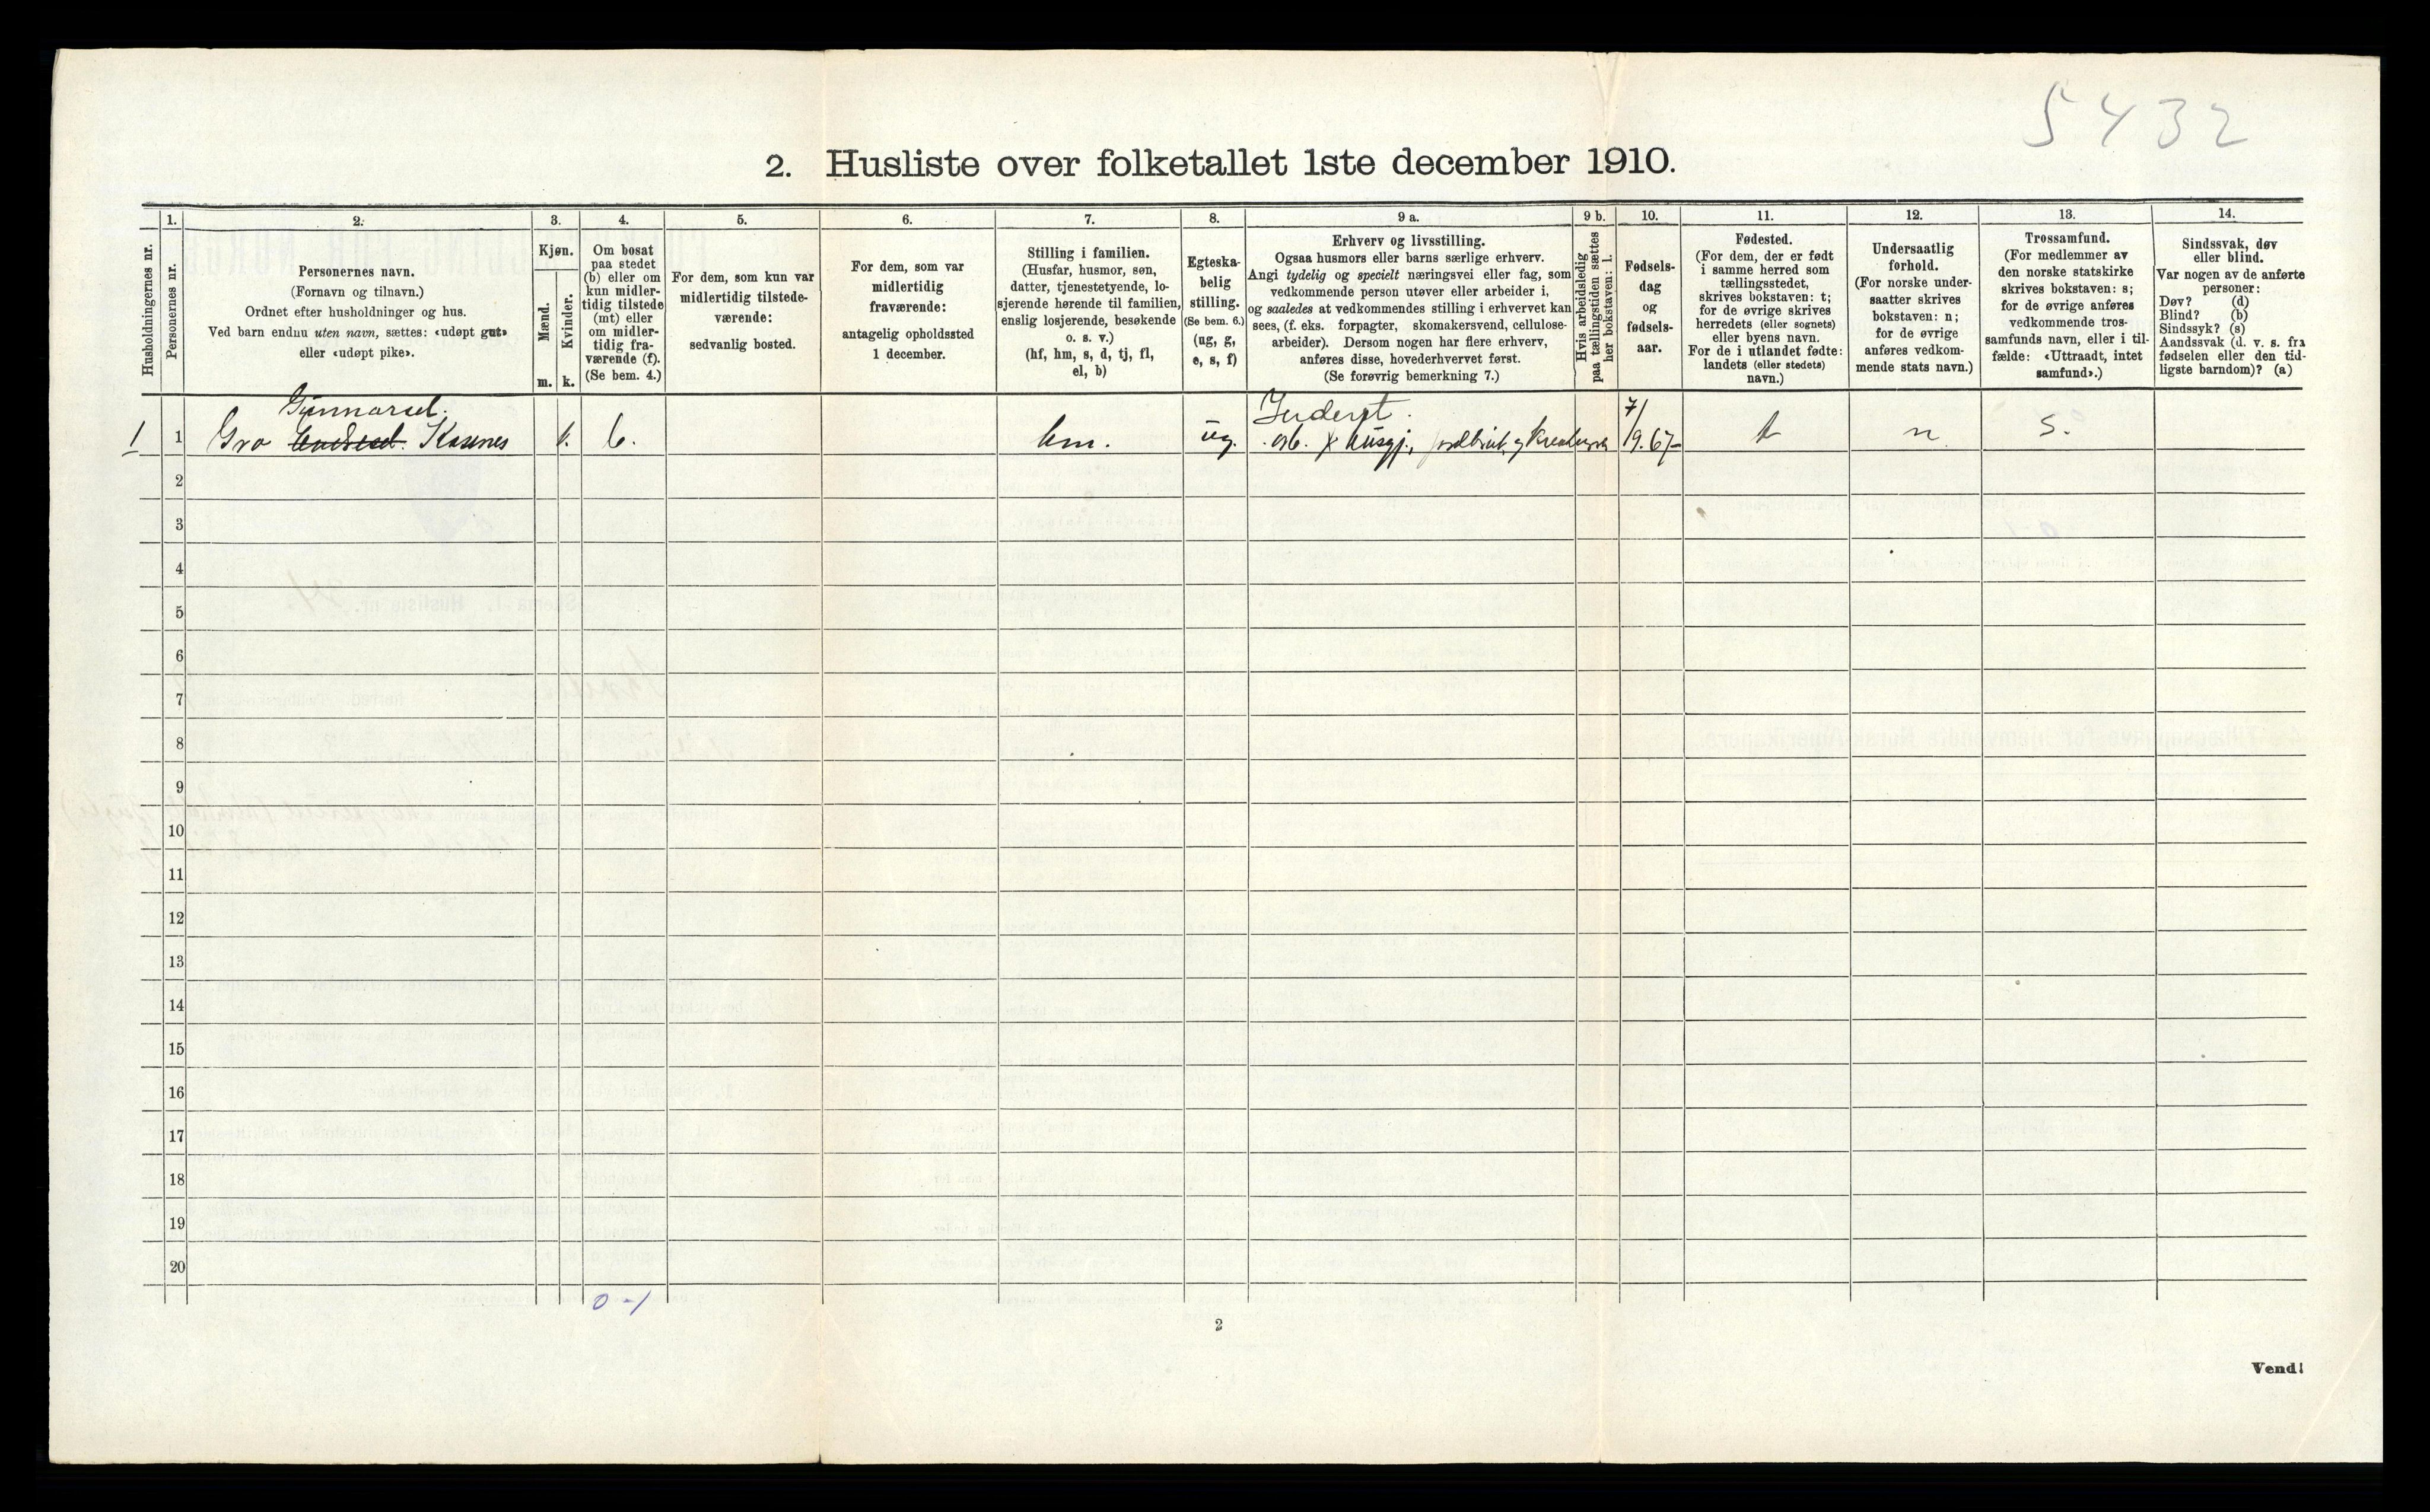 5432
2. Husliste over folketallet 1ste december 1910.
Husholdningernes nr.
1.
Personernes nr.
2.
Personernes navn.
(Fornavn og tilnavn.)
Ordnet efter husholdninger og hus.
Ved barn endnu uten navn, sættes: «udøpt gut»
eller «udøpt pike».
3.
Kjøn.
Mænd.
Kvinder.
m. k.
4.
Om bosat
paa stedet
(b) eller om
kun midler-
tidig tilstede
(mt) eller
om midler-
tidig fra-
værende (f).
(Se bem. 4.)
5.
For dem, som kun var
midlertidig tilstede-
værende:
sedvanlig bosted.
6.
For dem, som var
midlertidig
fraværende:
antagelig opholdssted
1 december.
7.
Stilling i familien.
(Husfar, husmor, søn,
datter, tjenestetyende, lo-
sjerende hørende til familien,
enslig losjerende, besøkende
o. s. v.)
(hf, hm, s, d, tj, fl,
el, b)
8.
Egteska-
belig
stilling.
(Se bem. 6.)
(ug, g,
e, s, f)
9 a.
Erhverv og livsstilling.
Ogsaa husmors eller barns særlige erhverv.
Angi tydelig og specielt næringsvei eller fag, som
vedkommende person utøver eller arbeider i,
og saaledes at vedkommendes stilling i erhvervet kan
sees, (f. eks. forpagter, skomakersvend, cellulose-
arbeider). Dersom nogen har flere erhverv,
anføres disse, hovederhvervet først.
(Se forøvrig bemerkning 7.)
9 b.
Hvis arbeidsledig
paa tællingstiden sættes
her bokstaven: l.
10.
Fødsels-
dag
og
fødsels-
aar.
11.
Fødested.
(For dem, der er født
i samme herred som
tællingsstedet,
skrives bokstaven: t;
for de øvrige skrives
herredets (eller sognets)
eller byens navn.
For de i utlandet fødte:
landets (eller stedets)
navn.)
12.
Undersaatlig
forhold.
(For norske under-
saatter skrives
bokstaven: n;
for de øvrige
anføres vedkom-
mende stats navn.)
13.
Trossamfund.
(For medlemmer av
den norske statskirke
skrives bokstaven: s;
for de øvrige anføres
vedkommende tros-
samfunds navn, eller i til-
fælde: «Uttraadt, intet
samfund».)
14.
Sindssvak, døv
eller blind.
Var nogen av de anførte
personer:
Døv? (d)
Blind? (b)
Sindssyk? (s)
Aandssvak (d. v. s. fra
fødselen eller den tid-
ligste barndom)? (a)
Gunnarsd.
Inderst.
1 1 Gro Kasenes k. b. hm. ug. arb. x husgj., jordbruk og Kreaturst 7/9.67 t n s.
2
3
4
5
6
7
8
9
10
11
12
13
14
15
16
17
18
19
20
0 - 1
2
Vend!